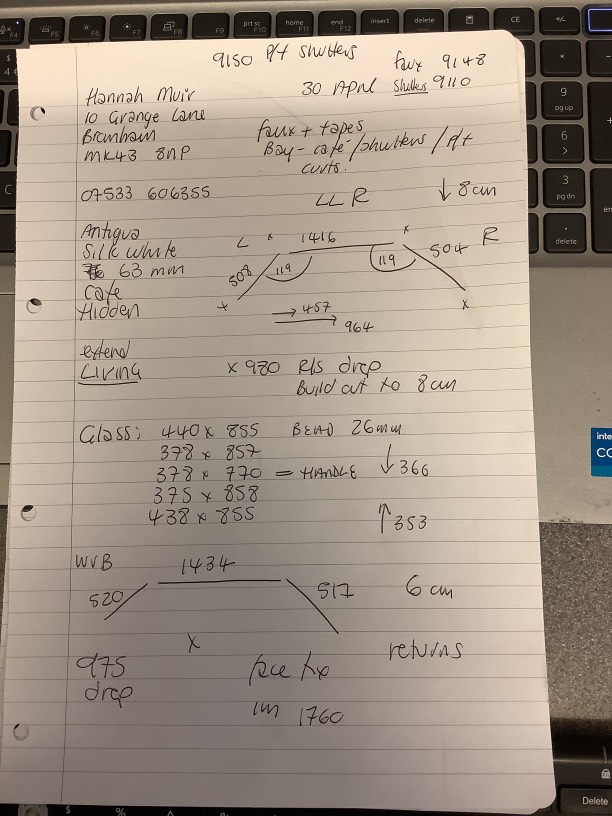 9150 P/t shutters
faux 9148
30 APril shutters 9110
Hannah Muir
10 Grange Lane
Bromham
MK43 8NP
faux + tapes
Bay - café / shutters / P/t
curts.
07533 606355
LLR ↓ 8cm
Antigua
Silk White
63 mm
Cafe
Hidden
L x 1416 x R
508 119 119 504
x x
→ 457
→ 964
extend
Living
x 980 R/S drop
Build out to 8cm
Glass: 440 x 855 BEAD 26mm
378 x 857
378 x 770 = HANDLE ↓ 366
375 x 858
438 x 855 ↑ 353
WVB 1434
520 517 6 cm
x
returns
975
drop
1760
prt sc
home
end
insert
delete
F4
F5
F6
F7
F8
F9
F10
F11
F12
CE
9
pg up
6
3
pg dn
delete
Delete